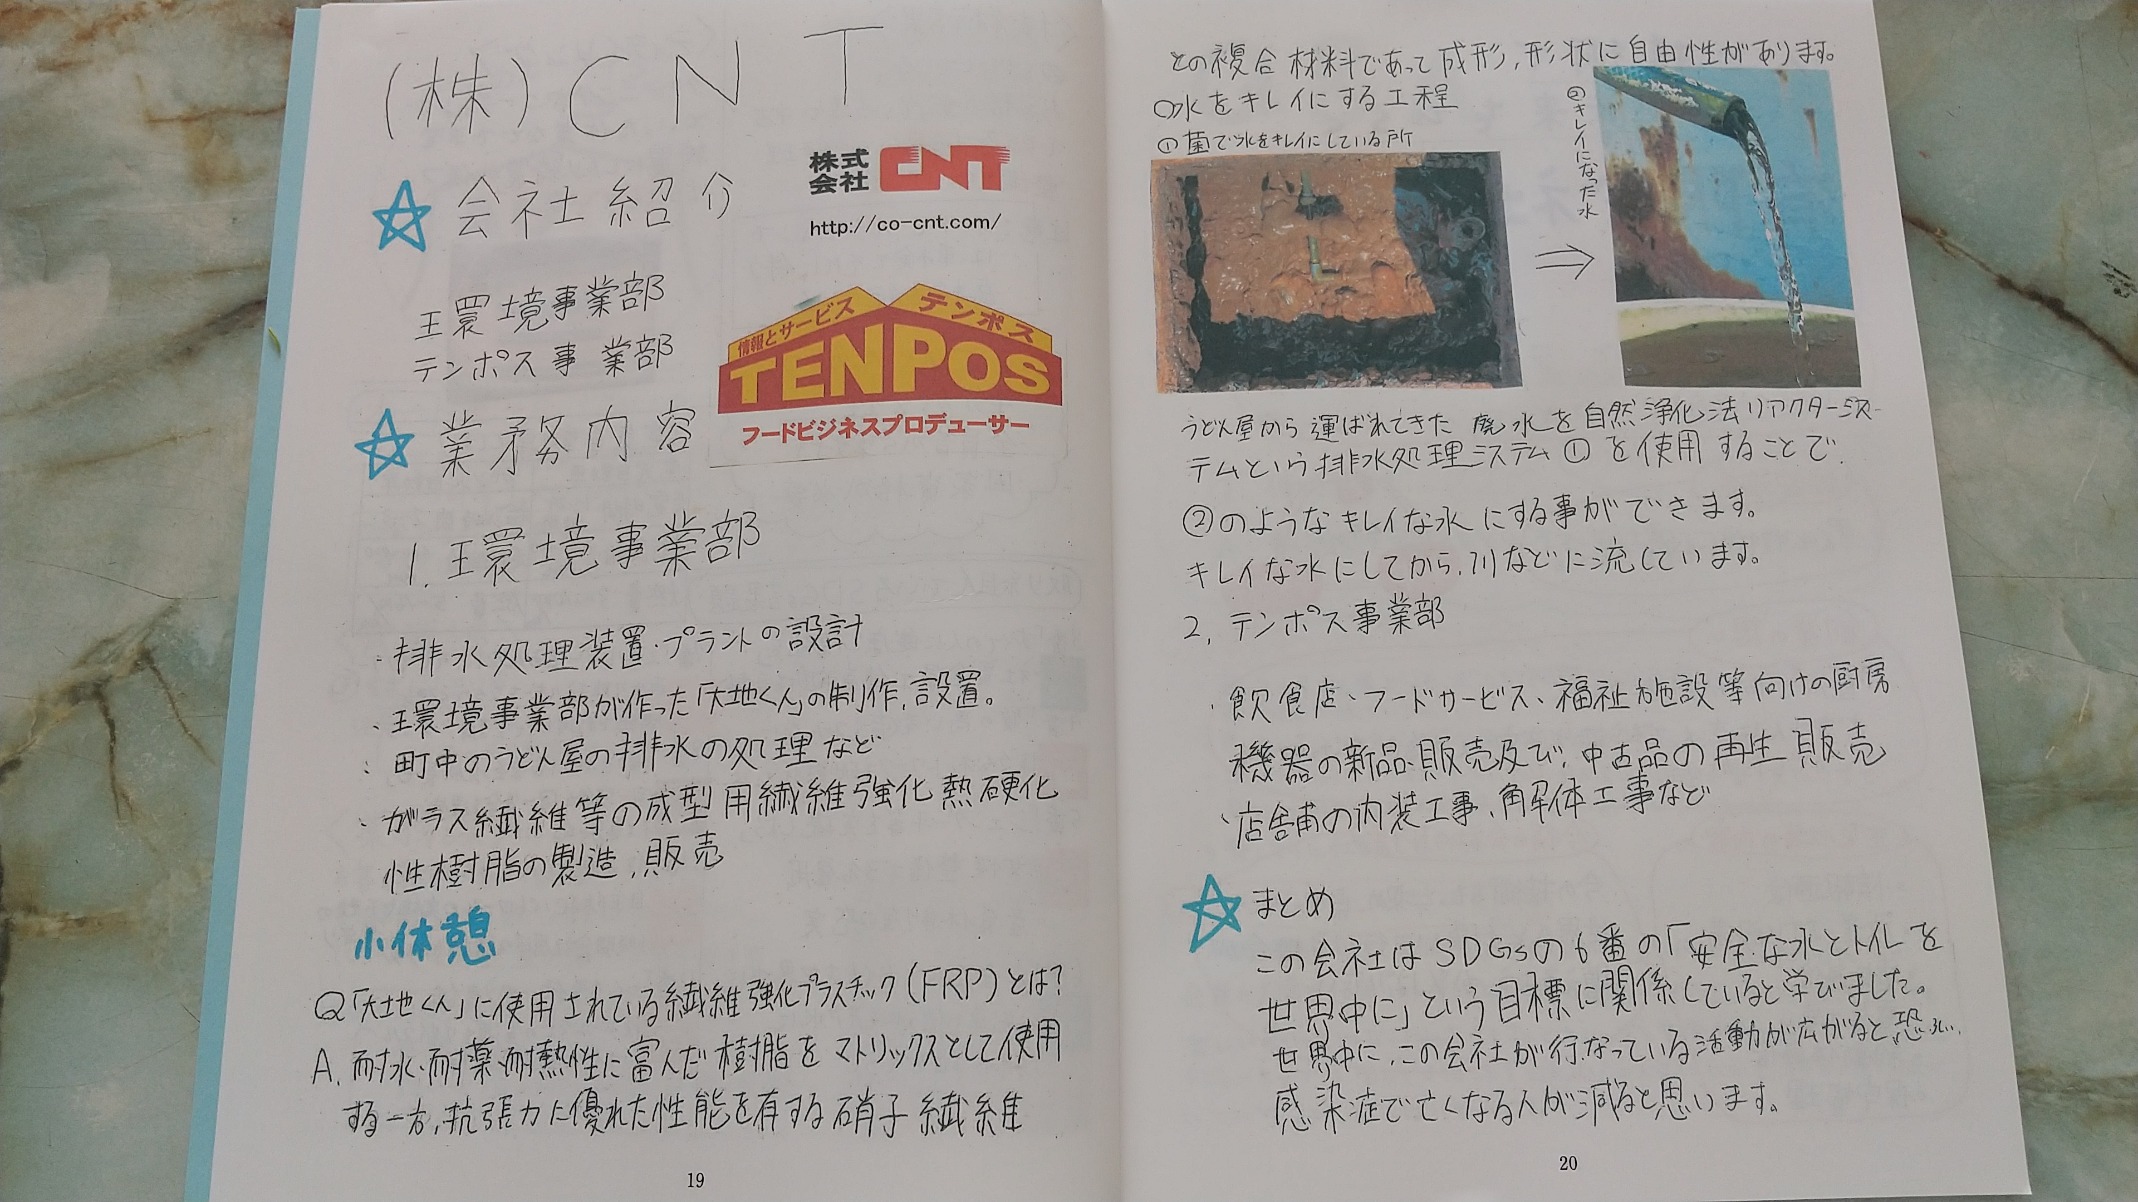 (株)CNT
株式
会社 CNT
http://co-cnt.com/
会社紹介
環境事業部
テンポス事業部
情報とサービス テンポス
TENPOS
フードビジネスプロデューサー
業務内容
1. 環境事業部
・排水処理装置・プラントの設計
・環境事業部が作った「大地くん」の制作、設置。
・町中のうどん屋の排水の処理など
・ガラス繊維等の成型用繊維強化熱硬化
性樹脂の製造、販売
小休憩
Q「大地くん」に使用されている繊維強化プラスチック(FRP)とは?
A. 耐水・耐薬・耐熱性に富んだ樹脂をマトリックスとして使用
する一方、抗張力に優れた性能を有する硝子繊維
19
との複合材料であって成形、形状に自由性があります。
○水をキレイにする工程
①菌で水をキレイにしている所
②キレイになった水
⇒
うどん屋から運ばれてきた廃水を自然浄化法リアクターシス-
テムという排水処理システム①を使用することで、
②のようなキレイな水にする事ができます。
キレイな水にしてから、川などに流しています。
2. テンポス事業部
・飲食店、フードサービス、福祉施設等向けの厨房
機器の新品販売及び、中古品の再生販売
・店舗の内装工事、解体工事など
まとめ
この会社はSDGsの6番の「安全な水とトイレを
世界中に」という目標に関係していると学びました。
世界中に、この会社が行なっている活動が広がると、恐
感染症で亡くなる人が減ると思います。
20